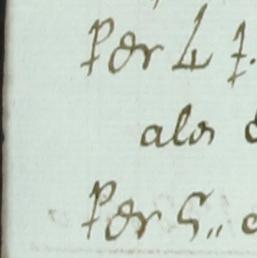 Por 4 7.
alos
Por 5,,